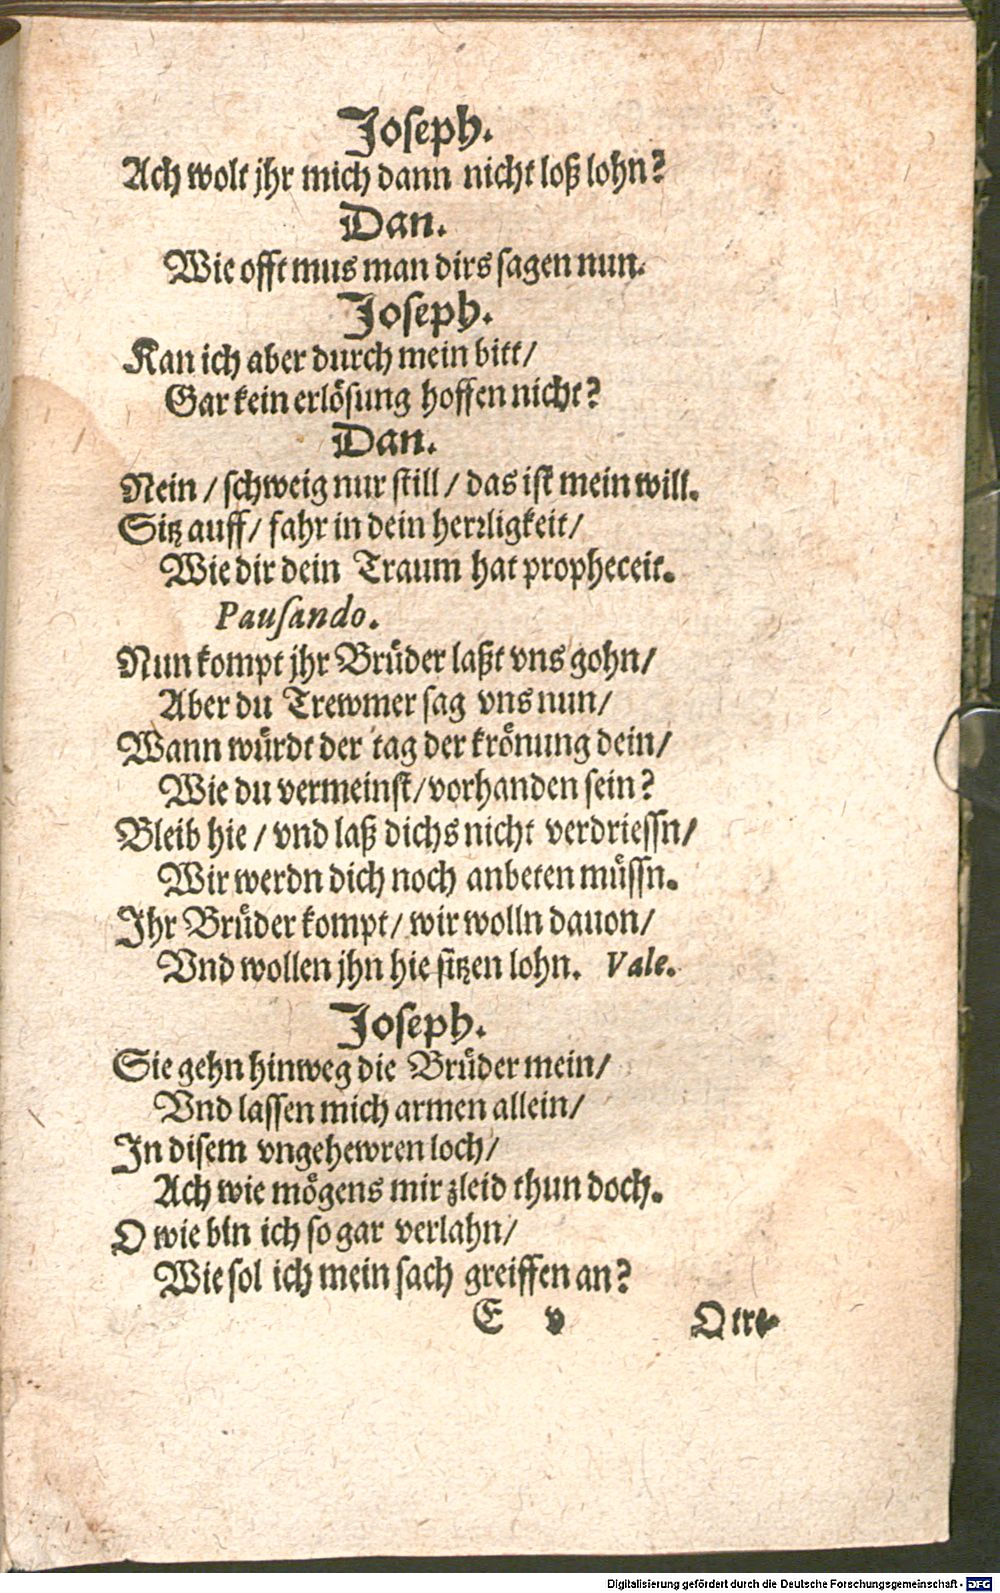 Joseph.
Ach wolt jhr mich dann nicht loß lohn?
Dan.
Wie offt mus man dirs sagen nun.
Joseph.
Kan ich aber durch mein bitt/
Gar kein erlösung hoffen nicht?
Dan.
Nein / schweig nur still / das ist mein will.
Sitz auff / fahr in dein herrligkeit /
Wie dir dein Traum hat propheceit.
Pausando.
Nun kompt jhr Brüder laßt vns gohn /
Aber du Trewmer sag vns nun /
Wann würdt der tag der krönung dein /
Wie du vermeinst / vorhanden sein?
Bleib hie / vnd laß dichs nicht verdriessn /
Wir werdn dich noch anbeten müssn.
Ihr Brüder kompt / wir wolln dauon /
Vnd wollen jhn hie sitzen lohn. Vale.
Joseph.
Sie gehn hinweg die Brüder mein /
Vnd lassen mich armen allein /
In disem vngehewren loch /
Ach wie mögens mir zleid thun doch.
O wie bin ich so gar verlahn /
Wie sol ich mein sach greiffen an?
E v O tre-
Digitalisierung gefördert durch die Deutsche Forschungsgemeinschaft - DFG